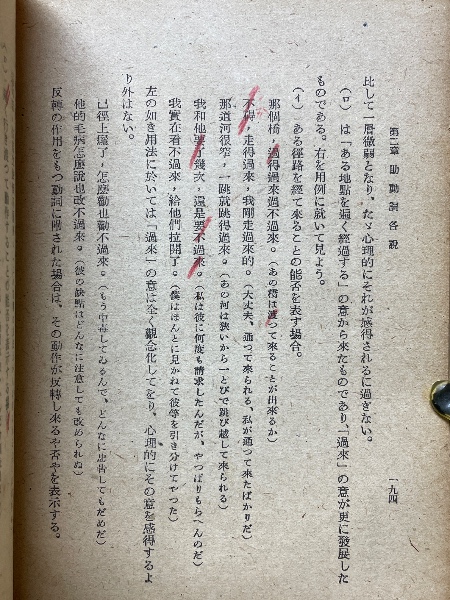 第二章 助動詞各說
一九四
比して一層微弱となり、たゞ心理的にそれが感得されるに過ぎない。
(ロ) は「ある地點を遍く經過する」の意から來たものであり、「過來」の意が更に發展した
ものである。右を用例に就いて見よう。
(イ) ある徑路を經て來ることの能否を表す場合。
那個橋，過得來過不過來。(あの橋は渡つて來ることが出來るか)
不得，走得過來，我剛走過來的。(大丈夫、通つて來られる、私が通つて來たばかりだ)
那道河很窄，一跳就跳得過來。(あの河は狹いから一とびで跳び越して來られる)
我和他要了幾次，還是要不過來。(私は彼に何度も請求したんだが、やつぱりもらへんのだ)
我實在看不過來，給他們拉開了。(僕はほんとに見かねて彼等を引き分けてやつた)
左の如き用法に於いては「過來」の意は全く觀念化してをり、心理的にその意を感得するよ
り外はない。
已經上癮了，怎麼勸也勸不過來。(もう中毒してゐるんで、どんなに忠告してもだめだ)
他的毛病怎麼說也改不過來。(彼の缺點はどんなに注意しても改められぬ)
反轉の作用をもつ動詞に附された場合は、その動作が反轉し來るや否やを表示する。